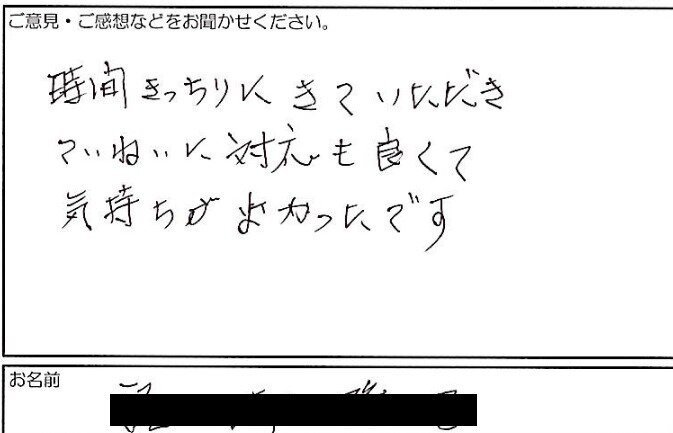 ご意見・ご感想などをお聞かせください。
時間きっちりに きていただき
ていねいに 対応も良くて
気持ちが よかったです
お名前